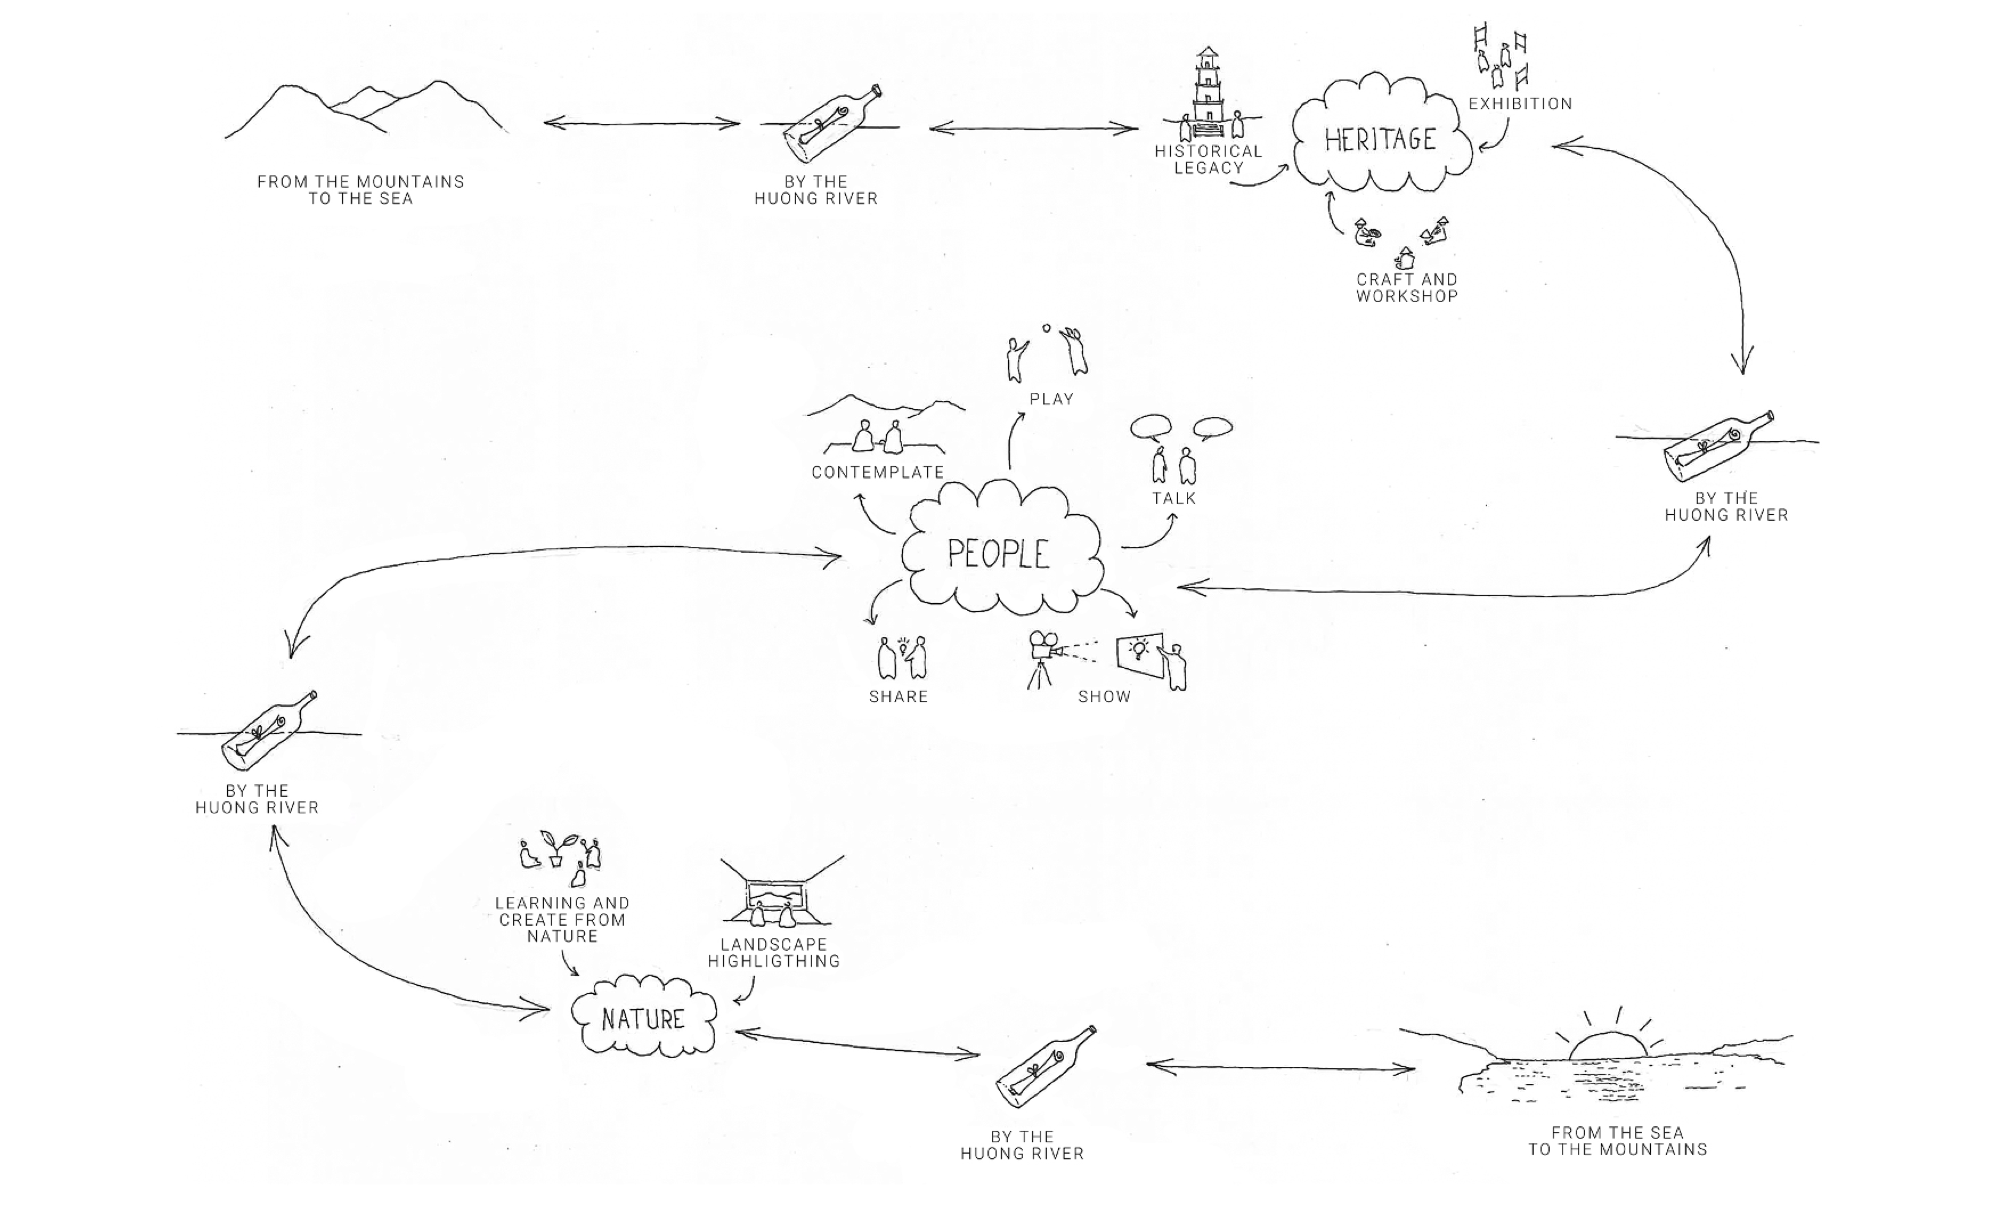 FROM THE MOUNTAINS
TO THE SEA
BY THE
HUONG RIVER
HISTORICAL
LEGACY
HERITAGE
EXHIBITION
CRAFT AND
WORKSHOP
BY THE
HUONG RIVER
PLAY
CONTEMPLATE
TALK
PEOPLE
SHARE
SHOW
BY THE
HUONG RIVER
LEARNING AND
CREATE FROM
NATURE
LANDSCAPE
HIGHLIGTHING
NATURE
BY THE
HUONG RIVER
FROM THE SEA
TO THE MOUNTAINS